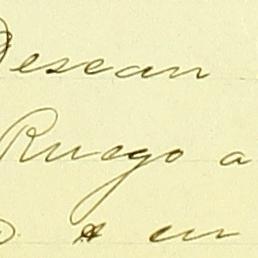 Desean
Ruego a
en